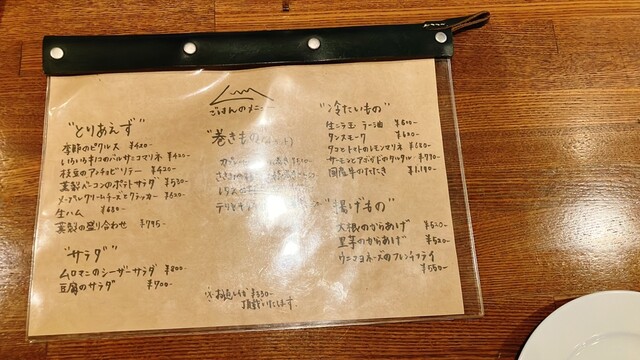 ごはんのメニュー
"とりあえず"
季節のピクルス ¥420-
いろいろキノコのバルサミコマリネ ¥400-
枝豆のアンチョビソテー ¥420-
燻製ベーコンのポテトサラダ ¥530-
メープルクリームチーズとクラッカー ¥520-
生ハム ¥680-
燻製の盛り合わせ ¥795-
"サラダ"
ムロマニのシーザーサラダ ¥800-
豆腐のサラダ ¥700-
"巻きもの
"冷たいもの"
生ニラ玉 ラー油 ¥600-
タンスモーク ¥600-
タコとトマトのレモンマリネ ¥680-
サーモンとアボカドのタルタル ¥790-
国産牛のたたき ¥1,180-
"揚げもの"
大根のからあげ ¥520-
里芋のからあげ ¥520-
ウニマヨネーズのフレンチフライ
¥550-
※お通し代 ¥330-
頂戴いたします。